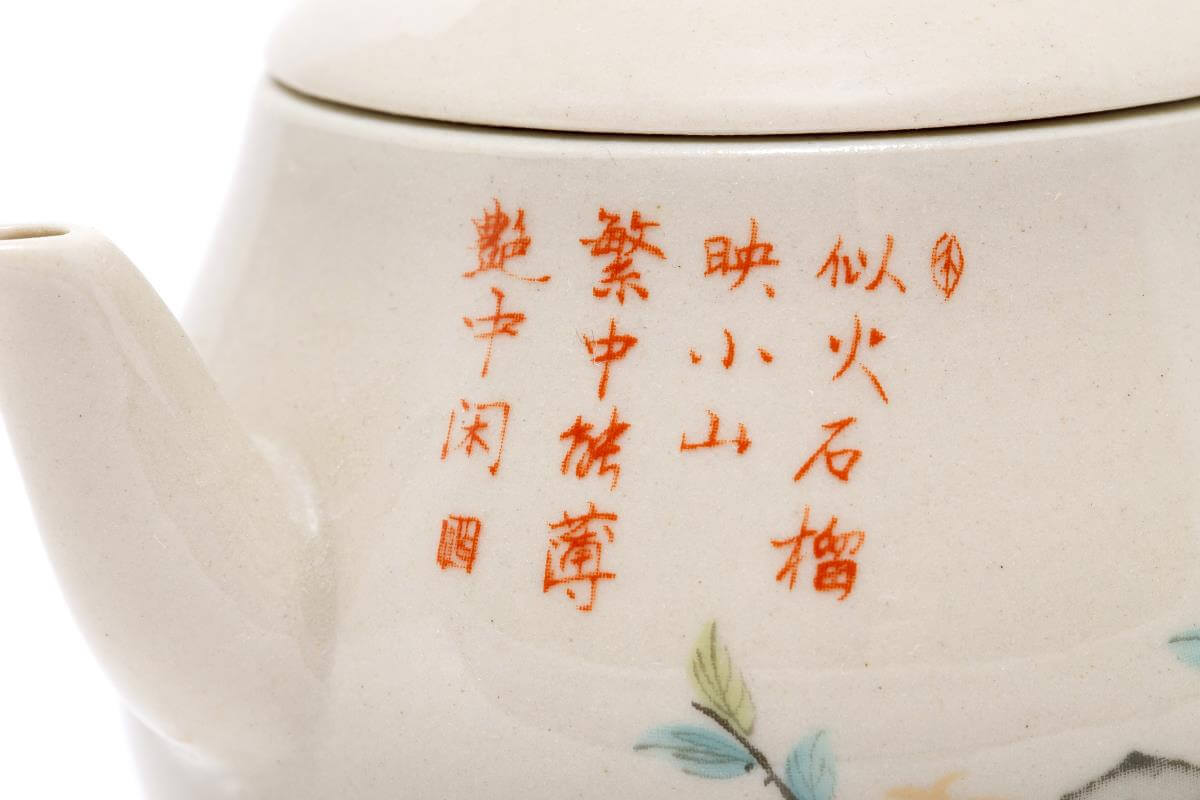 似火石榴
映小山
繁中能薄
艶中闲